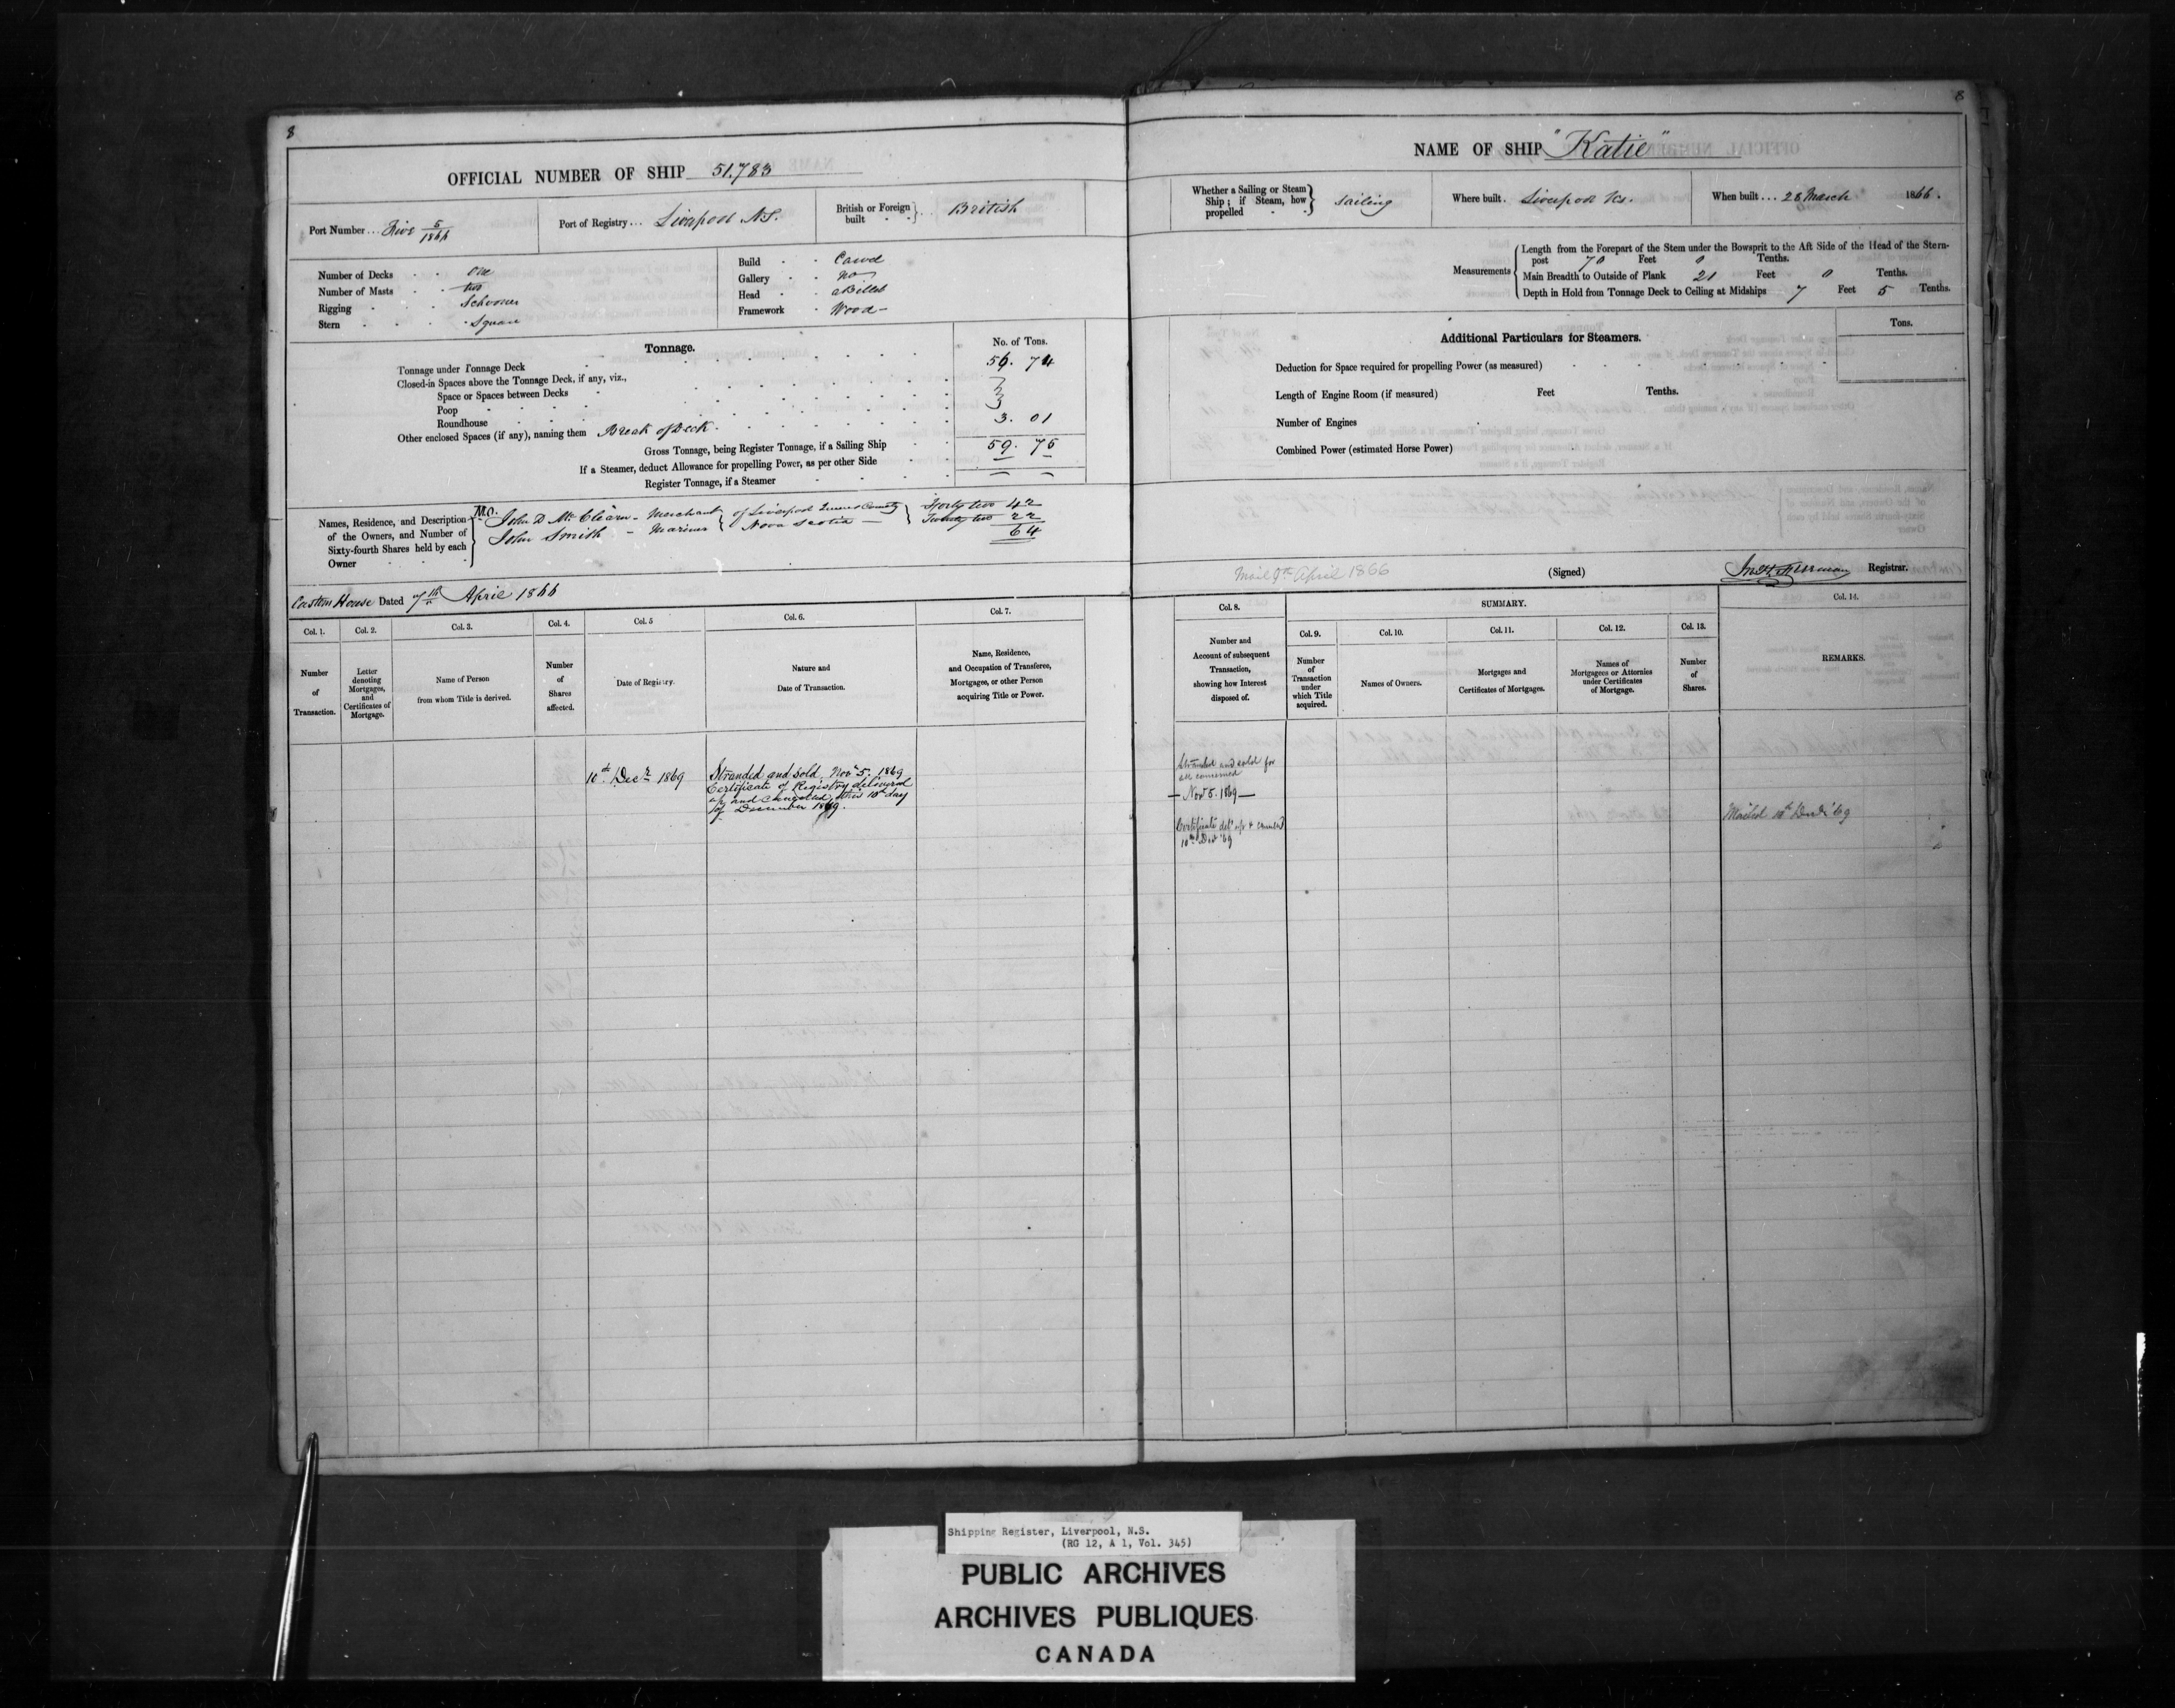 8
OFFICIAL NUMBER OF SHIP 51,783
Port Number... Five 5/1866
Port of Registry... Liverpool N.S.
British or Foreign built British
Number of Decks One
Number of Masts two
Rigging Schooner
Stern Square
Build Carvel
Gallery No
Head a Billet
Framework Wood
Tonnage.
No. of Tons.
Tonnage under Tonnage Deck 56. 74
Closed-in Spaces above the Tonnage Deck, if any, viz.,
Space or Spaces between Decks
Poop
Roundhouse
Other enclosed Spaces (if any), naming them Break of Deck. 3. 01
Gross Tonnage, being Register Tonnage, if a Sailing Ship 59. 75
If a Steamer, deduct Allowance for propelling Power, as per other Side
Register Tonnage, if a Steamer
Names, Residence, and Description of the Owners, and Number of Sixty-fourth Shares held by each Owner
M.O.
John D Mc Clearn - Merchant of Liverpool Queens County Forty two 42
John Smith - Mariner Nova Scotia Twenty two 22
64
Custom House Dated 7th April 1866
Col. 1.
Number of Transaction.
Col. 2.
Letter denoting Mortgages, and Certificates of Mortgage.
Col. 3.
Name of Person from whom Title is derived.
Col. 4.
Number of Shares affected.
Col. 5
Date of Registry.
Col. 6.
Nature and Date of Transaction.
Col. 7.
Name, Residence, and Occupation of Transferee, Mortgagee, or other Person acquiring Title or Power.
10th Decr 1869
Stranded and sold, Novr 5. 1869
Certificate of Registry delivered
up and cancelled this 10th day
of December 1869.
8
NAME OF SHIP "Katie"
Whether a Sailing or Steam Ship; if Steam, how propelled Sailing
Where built. Liverpool Ns.
When built... 28 March 1866.
Measurements
Length from the Forepart of the Stem under the Bowsprit to the Aft Side of the Head of the Stern-
post 70 Feet 0 Tenths.
Main Breadth to Outside of Plank 21 Feet 0 Tenths.
Depth in Hold from Tonnage Deck to Ceiling at Midships 7 Feet 5 Tenths.
Additional Particulars for Steamers.
Tons.
Deduction for Space required for propelling Power (as measured)
Length of Engine Room (if measured) Feet Tenths.
Number of Engines
Combined Power (estimated Horse Power)
Mail 9th April 1866
(Signed) Registrar.
Col. 8.
Number and Account of subsequent Transaction, showing how Interest disposed of.
SUMMARY.
Col. 9.
Number of Transaction under which Title acquired.
Col. 10.
Names of Owners.
Col. 11.
Mortgages and Certificates of Mortgages.
Col. 12.
Names of Mortgagees or Attornies under Certificates of Mortgage.
Col. 13.
Number of Shares.
Col. 14.
REMARKS.
Stranded and sold for
all concerned
- Nov 5. 1869 -
Certificate deld up & cancld
10th Decr '69
Mailed 10th Decr '69
Shipping Register, Liverpool, N.S.
(RG 12, A 1, Vol. 345)
PUBLIC ARCHIVES
ARCHIVES PUBLIQUES
CANADA